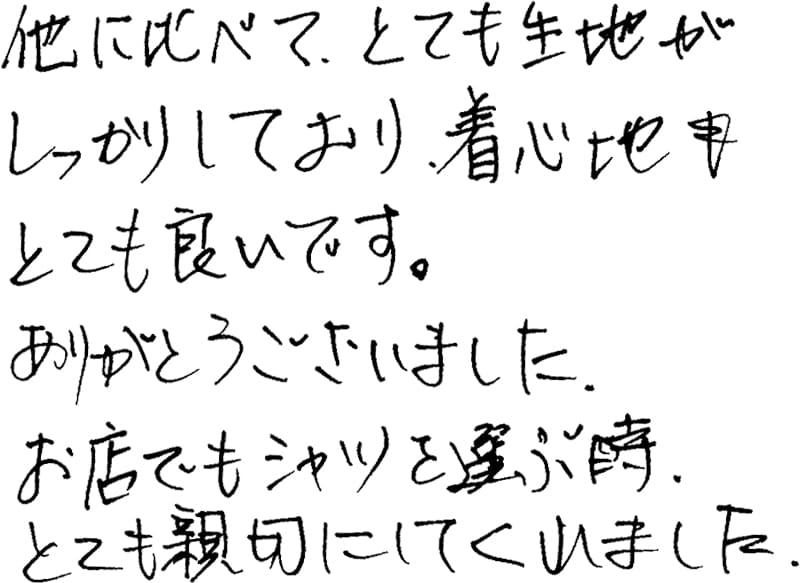 他に比べて、とても生地が
しっかりしており、着心地も
とても良いです。
ありがとうございました。
お店でもシャツを選ぶ時、
とても親切にしてくれました。